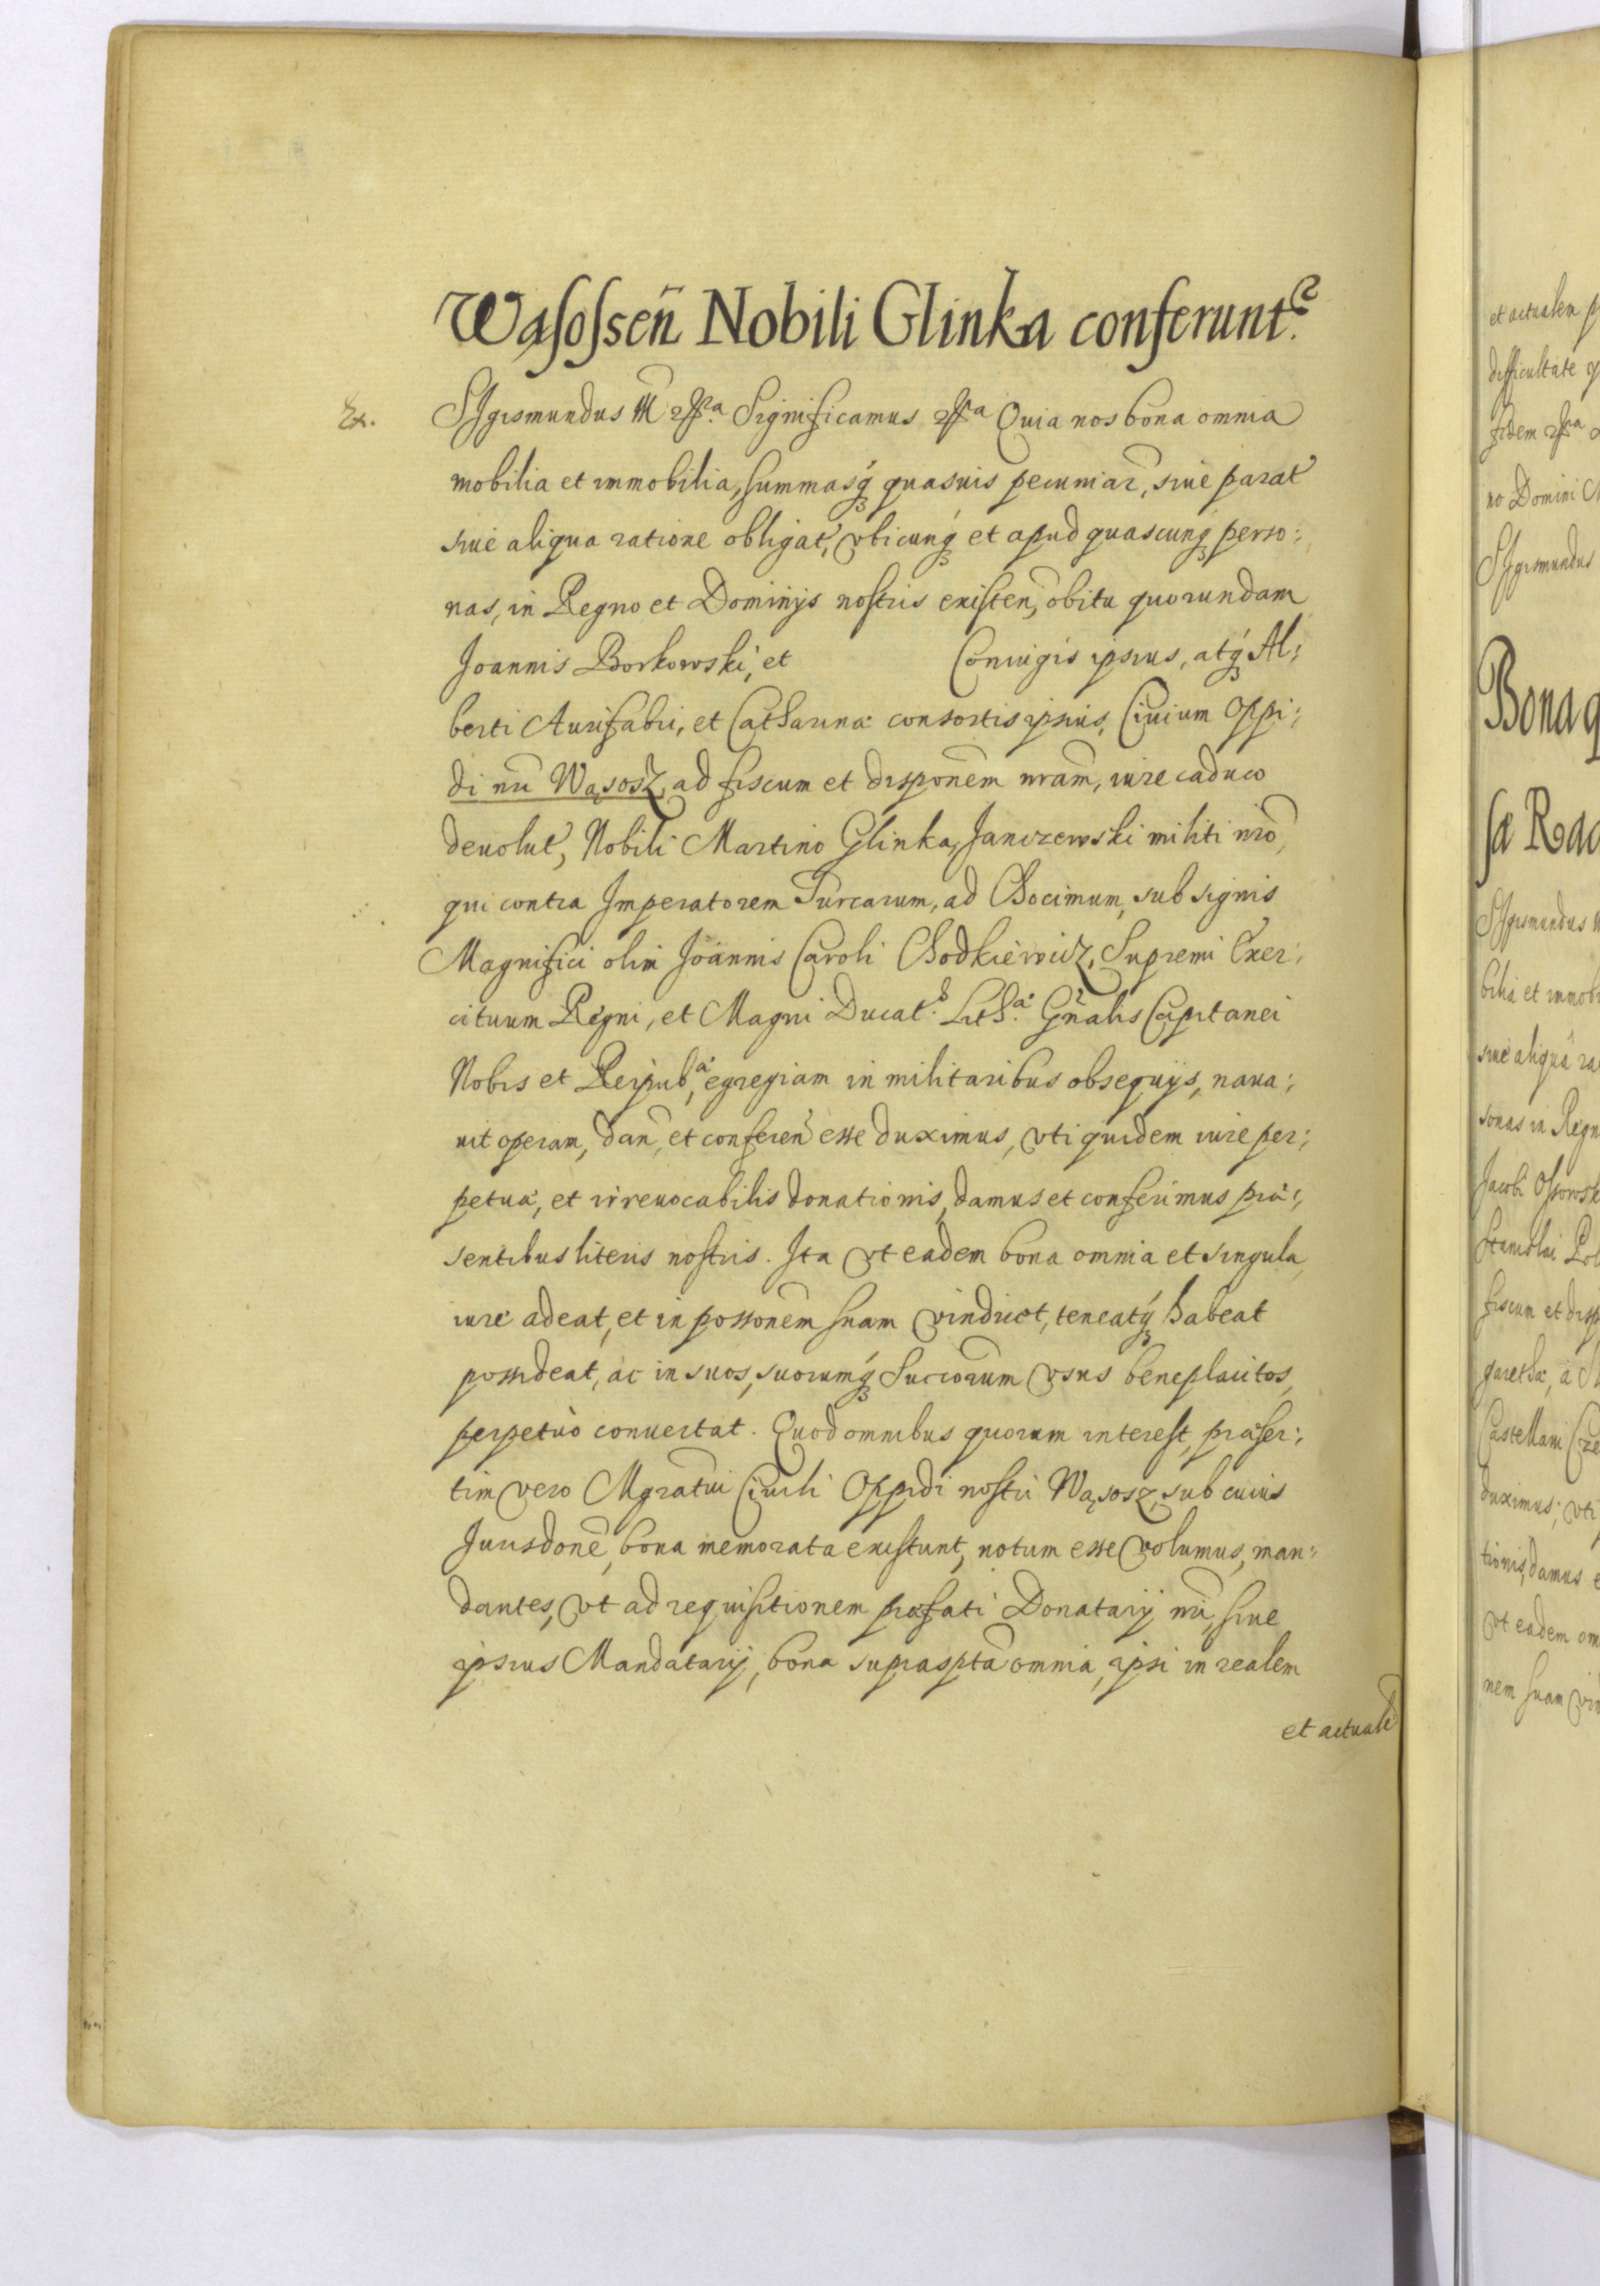 Wąsossen̄ Nobili Glinka conferunt.
Ex. Sigismundus III etc̃a. Significamus etc̃a Quia nos bona omnia
mobilia et immobilia, summasq́ꝫ quasuis pecuniar̃, siue parat̃
siue aliqua ratione obligat̃, vbicunqꝫ et apud quascunqꝫ perso:
nas, in Regno et Dominijs nostris existen̄, obitu quorundam
Joannis Borkowski, et Coniugis ipsius, atq́ꝫ Al:
berti Aurifabri, et Catharinæ consortis ipsius, Ciuium Oppi:
di nr̃i Wąsosz, ad fiscum et dispon̄em nr̃am, iure caduco
deuolut̃, Nobili Martino Glinka, Janczewski militi nr̃o,
qui contra Imperatorem Turcarum, ad Chocimum, sub signis
Magnifici olim Joannis Caroli Chodkiewicz, Supremi Exer:
cituum Regni, et Magni Ducat. Lith.æ Gñralis Capitanei
Nobis et Reipub.æ, egregiam in militaribus obsequijs, naua:
uit operam, dan̄, et conferen̄ esse duximus, vti quidem iure per:
petuæ, et irreuocabilis donationis, damus et conferimus præ:
sentibus literis nostris. Ita vt eadem bona omnia et singula,
iure adeat, et in posson̄em suam vindicet, teneatq́ꝫ habeat
possideat, ac in suos, suorumq́ꝫ Succor̃um vsus beneplacitos,
perpetuò conuertat. Quod omnibus quorum interest, præser:
tim vero Mgratui Ciuili Oppidi nostri Wąsosz, sub cuius
Jurisdon̄e, bona memorata existunt, notum esse volumus, man:
dantes, vt ad requisitionem præfati Donatarij nr̃i, siue
ipsius Mandatarij, bona suprasp̃ta omnia, ipsi in realem
et actualē
et actualem p
difficultate q
fidem etc̃a
no Domini
Sigismundus
Bona q
sæ Rad
Sigismundus
bilia et immobi
siue aliquâ ra
sonas in Regn
Jacobi Ossowsk
Stanislai
fiscum et disp
garethæ, à
Castellani
duximus, vti
tionis, damus e
vt eadem om
nem suam vin